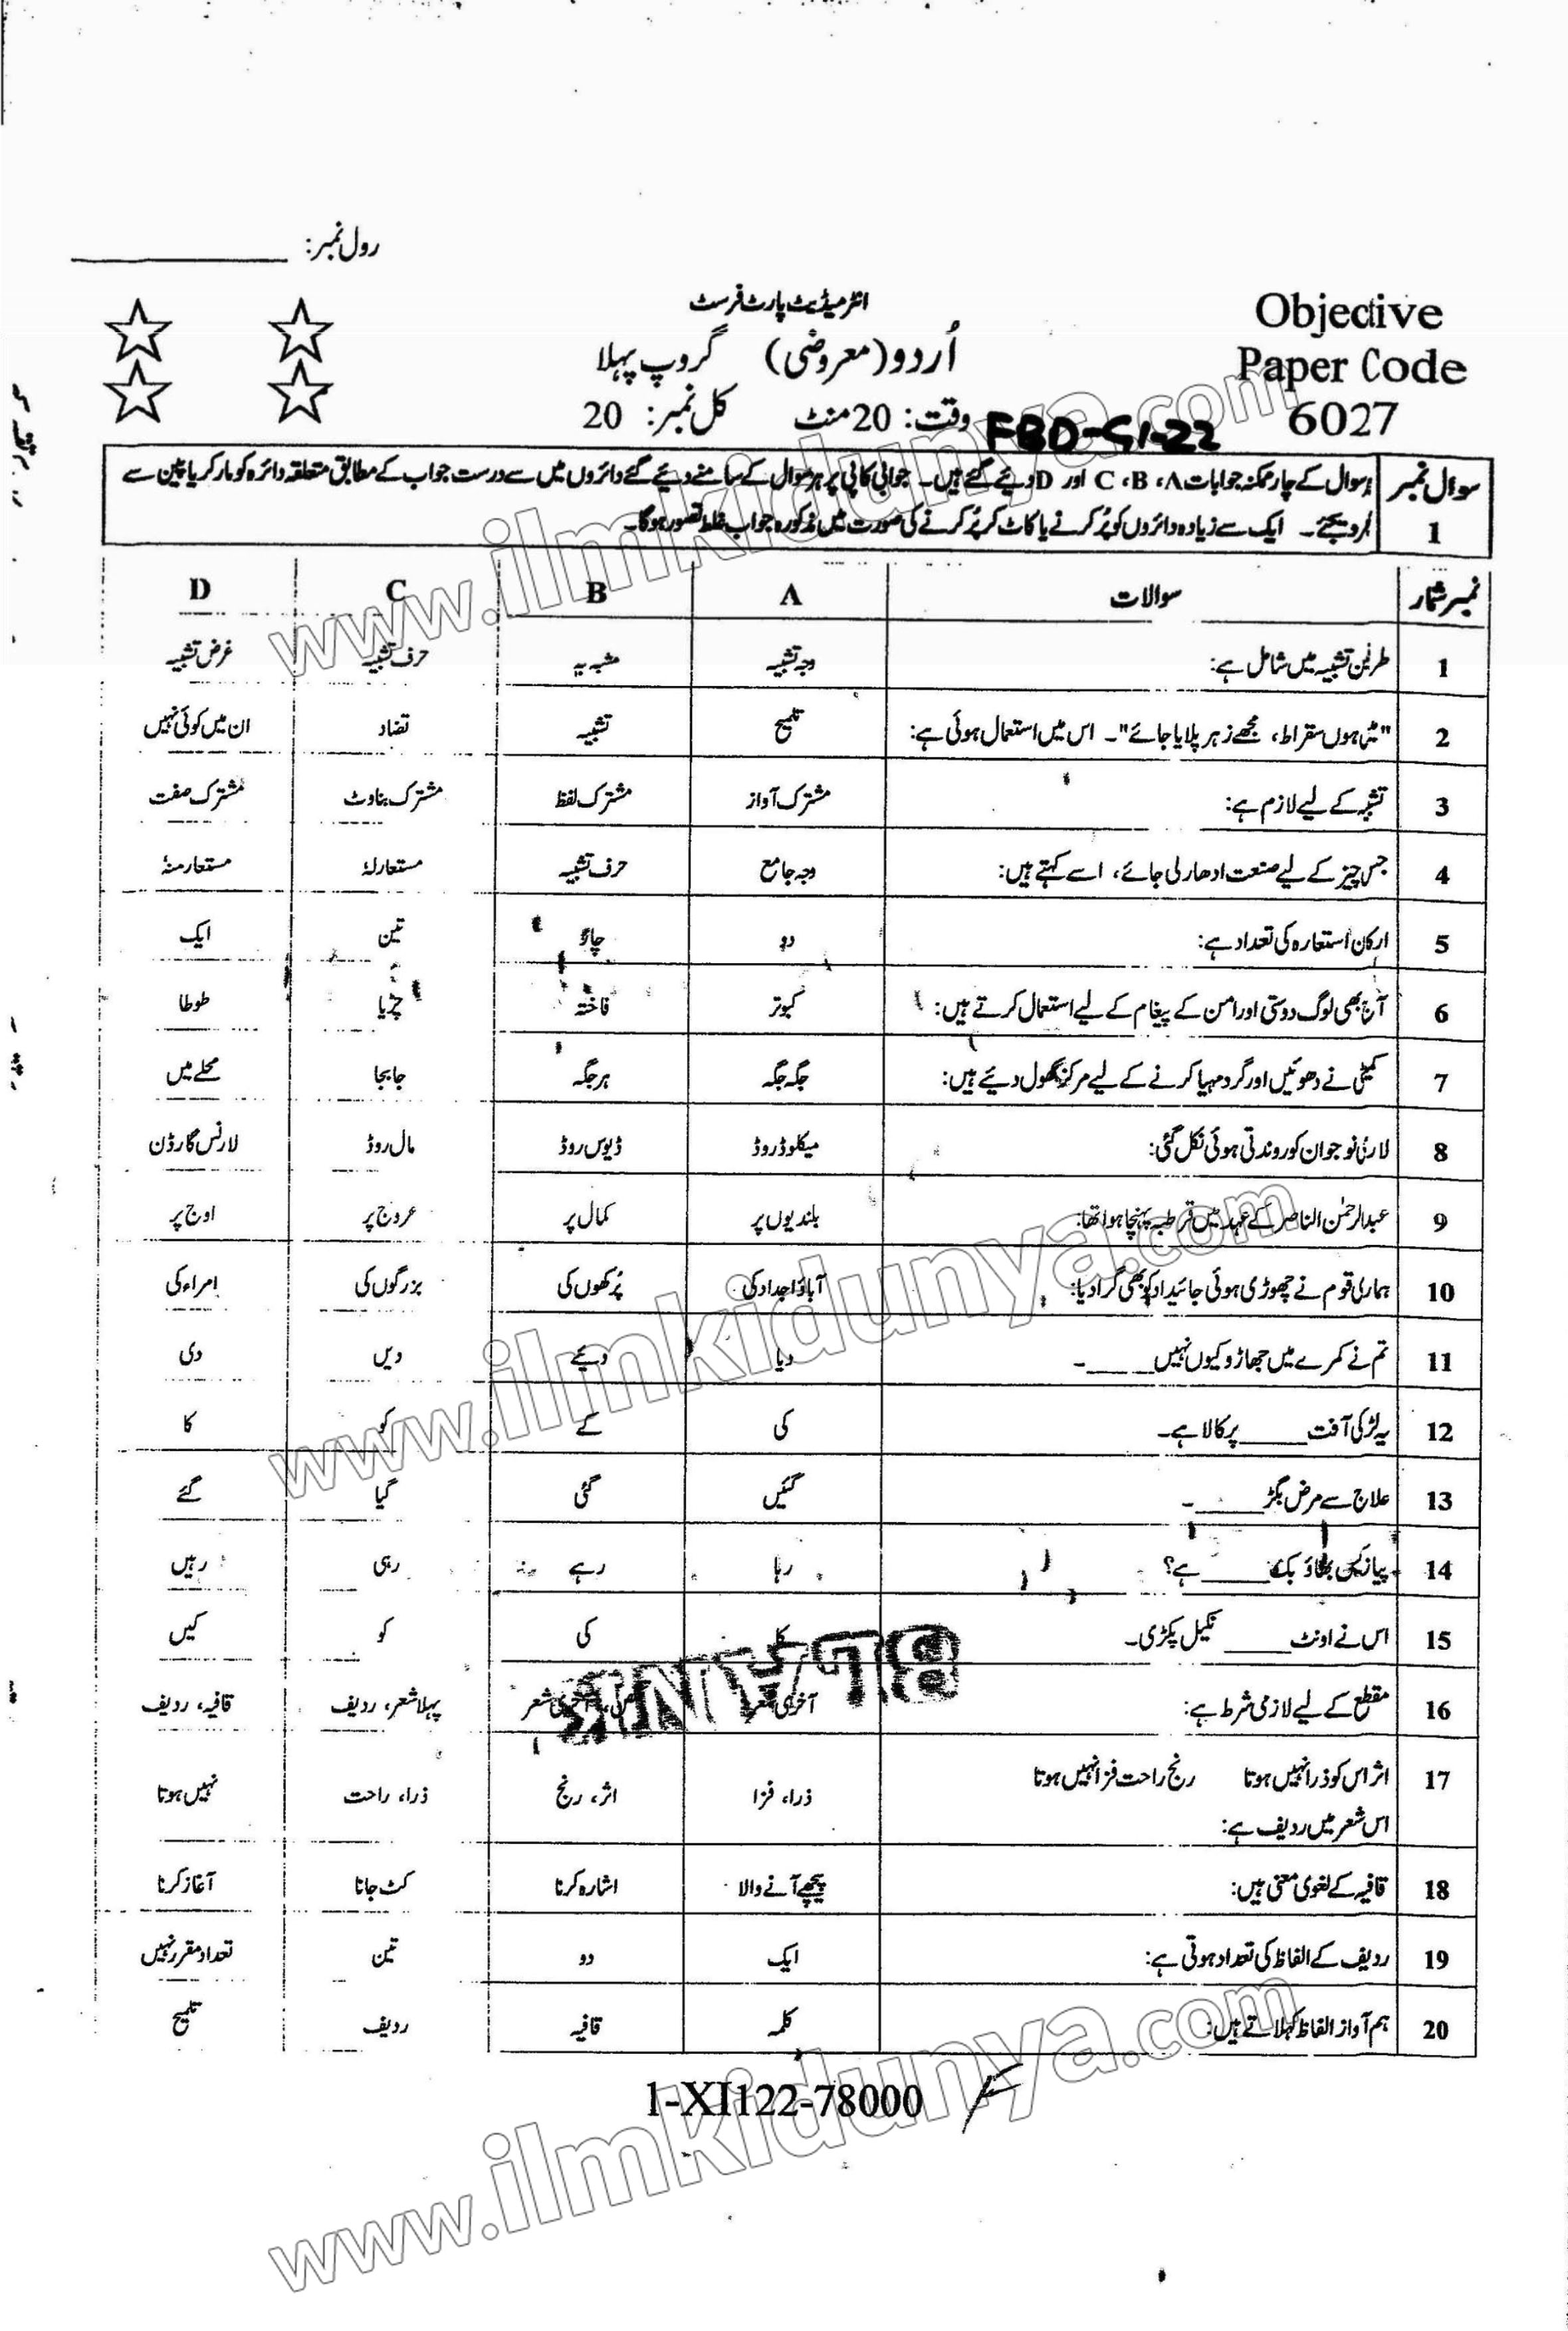 رول نمبر: ____________
انٹرمیڈیٹ پارٹ فرسٹ
Objective
اُردو (معروضی) گروپ پہلا
Paper Code
وقت: 20 منٹ کل نمبر: 20
6027
FBD-G1-22
سوال نمبر 1
ہر سوال کے چار ممکنہ جوابات A، B، C اور D دیئے گئے ہیں۔ جوابی کاپی پر ہر سوال کے سامنے دیئے گئے دائروں میں سے درست جواب کے مطابق متعلقہ دائرہ کو مارکر یا پین سے
بھر دیجئے۔ ایک سے زیادہ دائروں کو پُر کرنے یا کاٹ کر پُر کرنے کی صورت میں مذکورہ جواب غلط تصور ہوگا۔
نمبر شمار سوالات A B C D
1 طرفین تشبیہ میں شامل ہے: وجہ تشبیہ مشبہ بہ حرف تشبیہ غرض تشبیہ
2 "میں ہوں سقراط، مجھے زہر پلایا جائے"۔ اس میں استعمال ہوئی ہے: تلمیح تشبیہ تضاد ان میں کوئی نہیں
3 تشبیہ کے لیے لازم ہے: مشترک آواز مشترک لفظ مشترک بناوٹ مشترک صفت
4 جس چیز کے لیے صنعت ادھار لی جائے، اسے کہتے ہیں: وجہ جامع حرف تشبیہ مستعارلہٗ مستعارمنہٗ
5 ارکان استعارہ کی تعداد ہے: دو چار تین ایک
6 آج بھی لوگ دوستی اور امن کے پیغام کے لیے استعمال کرتے ہیں: کبوتر فاختہ چڑیا طوطا
7 کمیٹی نے دھوئیں اور گرد مہیا کرنے کے لیے مرکز کھول دیئے ہیں: جگہ جگہ ہر جگہ جابجا محلے میں
8 لاری نوجوان کو روندتی ہوئی نکل گئی: میکلوڈ روڈ ڈیوس روڈ مال روڈ لارنس گارڈن
9 عبدالرحمٰن الناصر کے عہد میں قرطبہ پہنچا ہوا تھا: بلندیوں پر کمال پر عروج پر اوج پر
10 ہماری قوم نے چھوڑی ہوئی جائیداد کو بھی گرا دیا: آباؤ اجداد کی پُرکھوں کی بزرگوں کی امراء کی
11 تم نے کمرے میں جھاڑو کیوں نہیں _____۔ دیا دیئے دیں دی
12 یہ لڑکی آفت _____ پرکالا ہے۔ کی کے کو کا
13 علاج سے مرض بگڑ _____۔ گئیں گئی گیا گئے
14 پیاز کس بھاؤ بک _____ ہے؟ رہا رہے رہی رہیں
15 اس نے اونٹ _____ نکیل پکڑی۔ کا کی کو کیں
BLANK
16 مقطع کے لیے لازمی شرط ہے: آخری شعر پہلا شعر، ردیف قافیہ، ردیف
17 اثر اس کو ذرا نہیں ہوتا رنج راحت فزا نہیں ہوتا
اس شعر میں ردیف ہے: ذرا، فزا اثر، رنج ذرا، راحت نہیں ہوتا
18 قافیہ کے لغوی معنی ہیں: پیچھے آنے والا اشارہ کرنا کٹ جانا آغاز کرنا
19 ردیف کے الفاظ کی تعداد ہوتی ہے: ایک دو تین تعداد مقرر نہیں
20 ہم آواز الفاظ کہلاتے ہیں: کلمہ قافیہ ردیف تلمیح
1-XI122-78000
www.ilmkidunya.com
www.ilmkidunya.com
www.ilmkidunya.com